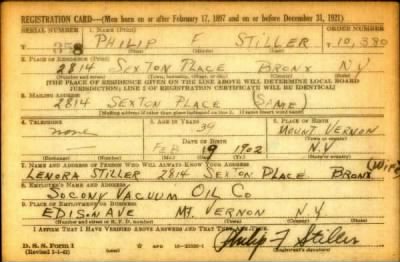 REGISTRATION CARD—(Men born on or after February 17, 1897 and on or before December 31, 1921)
SERIAL NUMBER 1. NAME (Print) ORDER NUMBER
T 358 PHILIP F STILLER T 10,380
2. PLACE OF RESIDENCE (Print)
2814 SEXTON PLACE BRONX N.Y
(Number and street) (Town, township, village, or city) (County) (State)
[THE PLACE OF RESIDENCE GIVEN ON THE LINE ABOVE WILL DETERMINE LOCAL BOARD
JURISDICTION; LINE 2 OF REGISTRATION CERTIFICATE WILL BE IDENTICAL]
3. MAILING ADDRESS
2814 SEXTON PLACE (SAME)
[Mailing address if other than place indicated on line 2. If same insert word same]
4. TELEPHONE 5. AGE IN YEARS 6. PLACE OF BIRTH
none 39 MOUNT VERNON
DATE OF BIRTH
FEB 19 1902 N.Y
(Exchange) (Number) (Mo.) (Day) (Yr.) (State or country)
7. NAME AND ADDRESS OF PERSON WHO WILL ALWAYS KNOW YOUR ADDRESS (WIFE)
LENORA STILLER 2814 SEXTON PLACE BRONX
8. EMPLOYER'S NAME AND ADDRESS
SOCONY VACUUM OIL CO
9. PLACE OF EMPLOYMENT OR BUSINESS
EDISON AVE MT. VERNON N.Y
(Number and street or R. F. D. number) (Town) (County) (State)
I AFFIRM THAT I HAVE VERIFIED ABOVE ANSWERS AND THAT THEY ARE TRUE.
D. S. S. Form 1
(Revised 1-1-42) Philip F Stiller